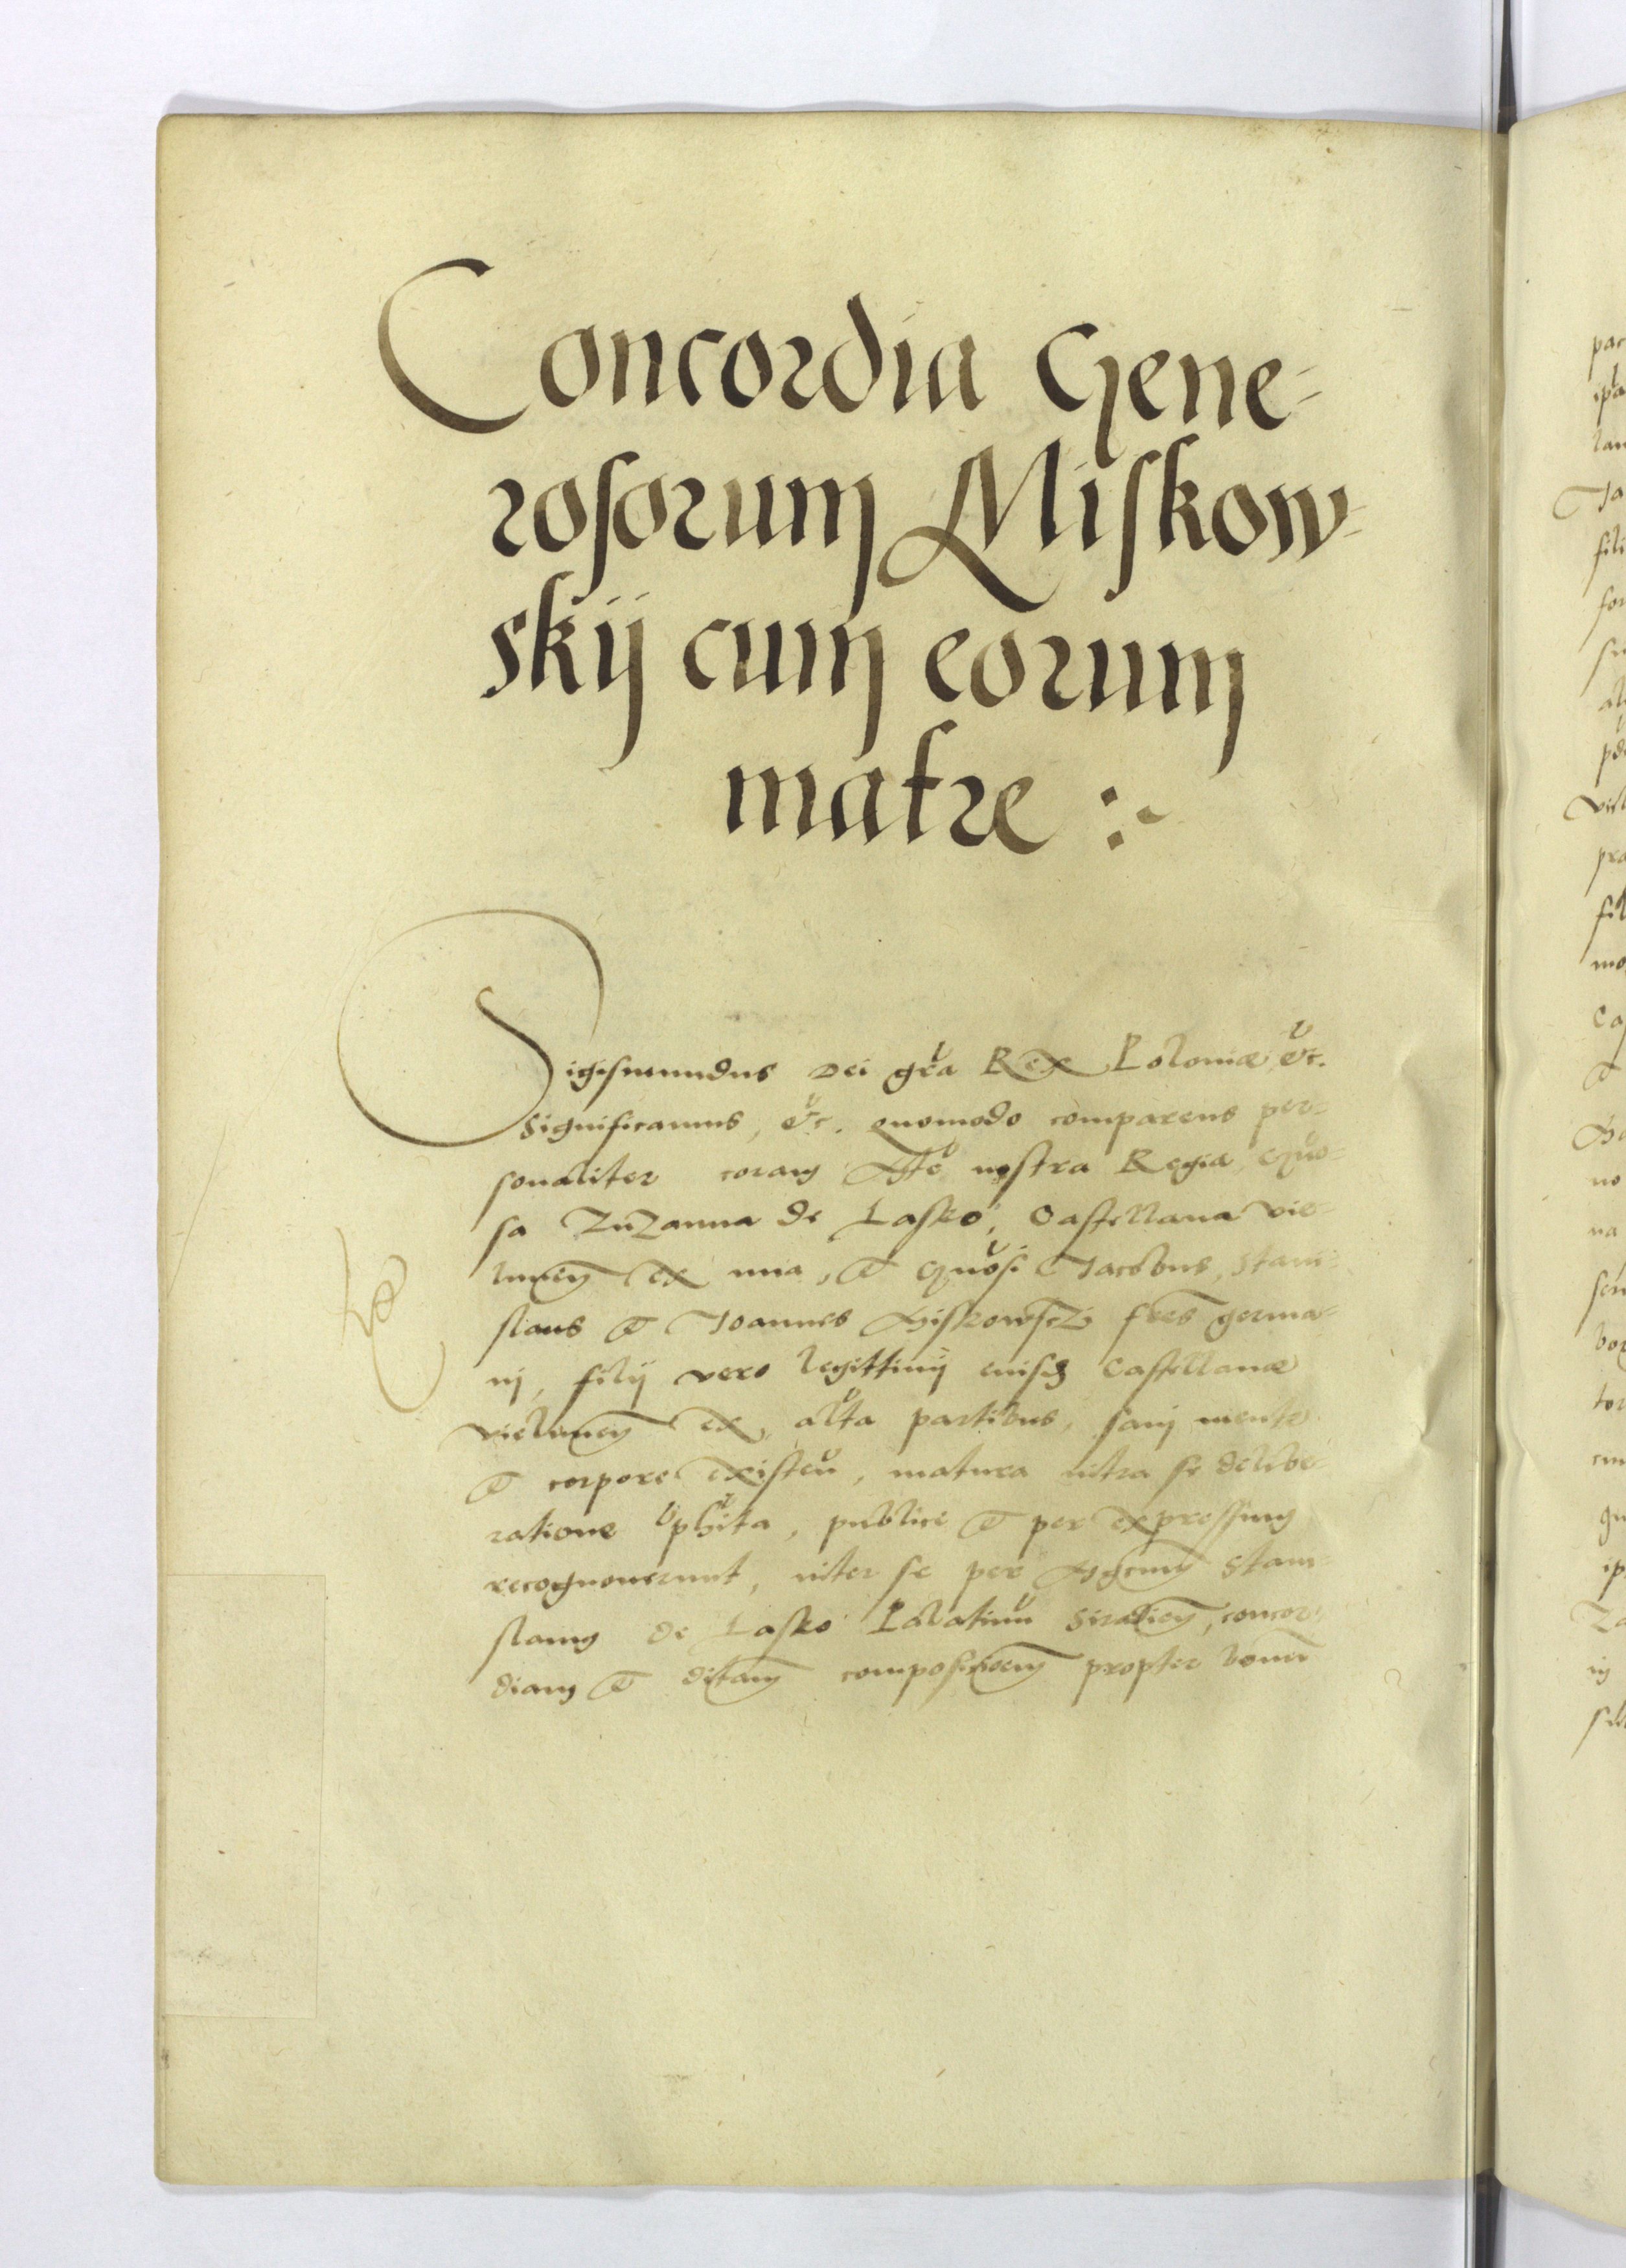 Concordia Gene-
rosorum Miskow-
skij cum eorum
matre :~
Sigismundus Dei gra Rex Poloniæ, etc.
Significamus, etc. quomodo comparens per-
sonaliter coram Mte nostra Regia, Gno-
sa Zuzanna de Lasko, Castellana vie-
lunen ex una, et Gnosi Jacobus, Stani-
slaus et Joannes Miskowsci fres germa-
nj, filij vero legittimj eiusdem Castellanæ
vielunen ex alta partibus, sanj mente
et corpore existen, matura intra se delibe-
ratione phita, publice et per expressum
recognouerunt, inter se per Stani-
slaum de Lasko Palatinu Siradien, concor-
diam et ditam composicioem propter bonu